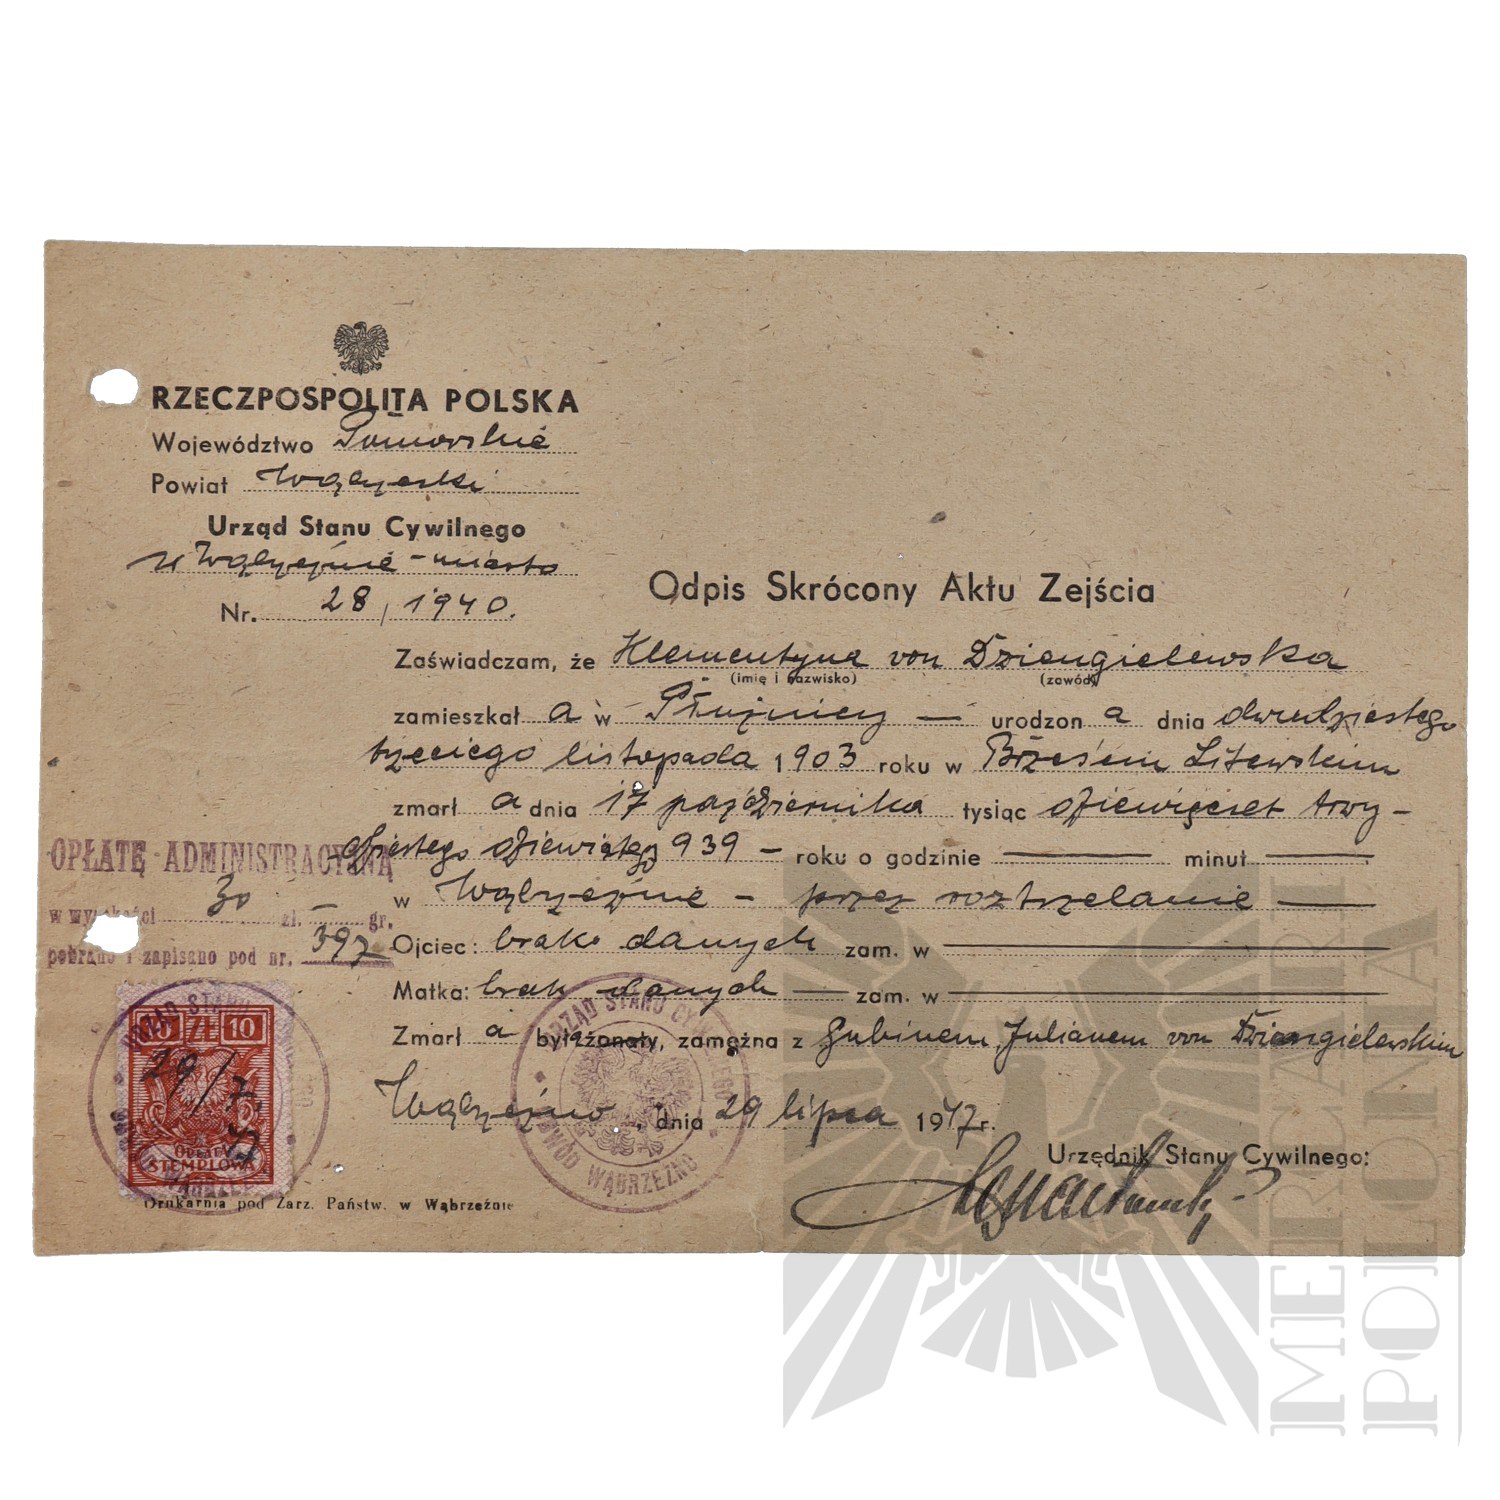 RZECZPOSPOLITA POLSKA
Województwo Pomorskie
Powiat Wąbrzeski
Urząd Stanu Cywilnego
w Wąbrzeźnie - miasto
Nr. 28 / 1940.
Odpis Skrócony Aktu Zejścia
Zaświadczam, że Klementyna von Dziengielewska
(imię i nazwisko) (zawód)
zamieszkał a w Płużnicy — urodzon a dnia dwudziestego
trzeciego listopada 1903 roku w Brześciu Litewskim
zmarł a dnia 17 października tysiąc dziewięćset trzy-
dziestego dziewiątego 939 - roku o godzinie — minut —
w Wąbrzeźnie - przez roztrzelanie —
Ojciec: brak danych zam. w
Matka: brak danych — zam. w
Zmarł a był żonaty, zamężna z Gubinem, Julianem von Dziengielewskim
Wąbrzeźno, dnia 29 lipca 1947 r.
Urzędnik Stanu Cywilnego:
OPŁATĘ ADMINISTRACYJNĄ
w wysokości 30 zł. — gr.
pobrano i zapisano pod nr. 397
10 ZŁ 10
29/7. 47
OPŁATY
STEMPLOWA
URZĄD STANU CYWILNEGO
OBWÓD WĄBRZEŹNO
Drukarnia pod Zarz. Państw. w Wąbrzeźnie
MILITARIA
POLONIA